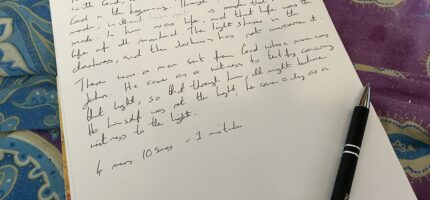 with God,
God in the beginning. Through
made; without
made. In him was life, and that life was the
light of all mankind. The light shines in the
darkness, and the darkness has not overcome it.
There was a man sent from God whose name was
John. He came as a witness to testify concerning
that light, so that through him all might believe.
He himself was not the light; he came only as a
witness to the light.
4 mins 10 secs - 1 mistake